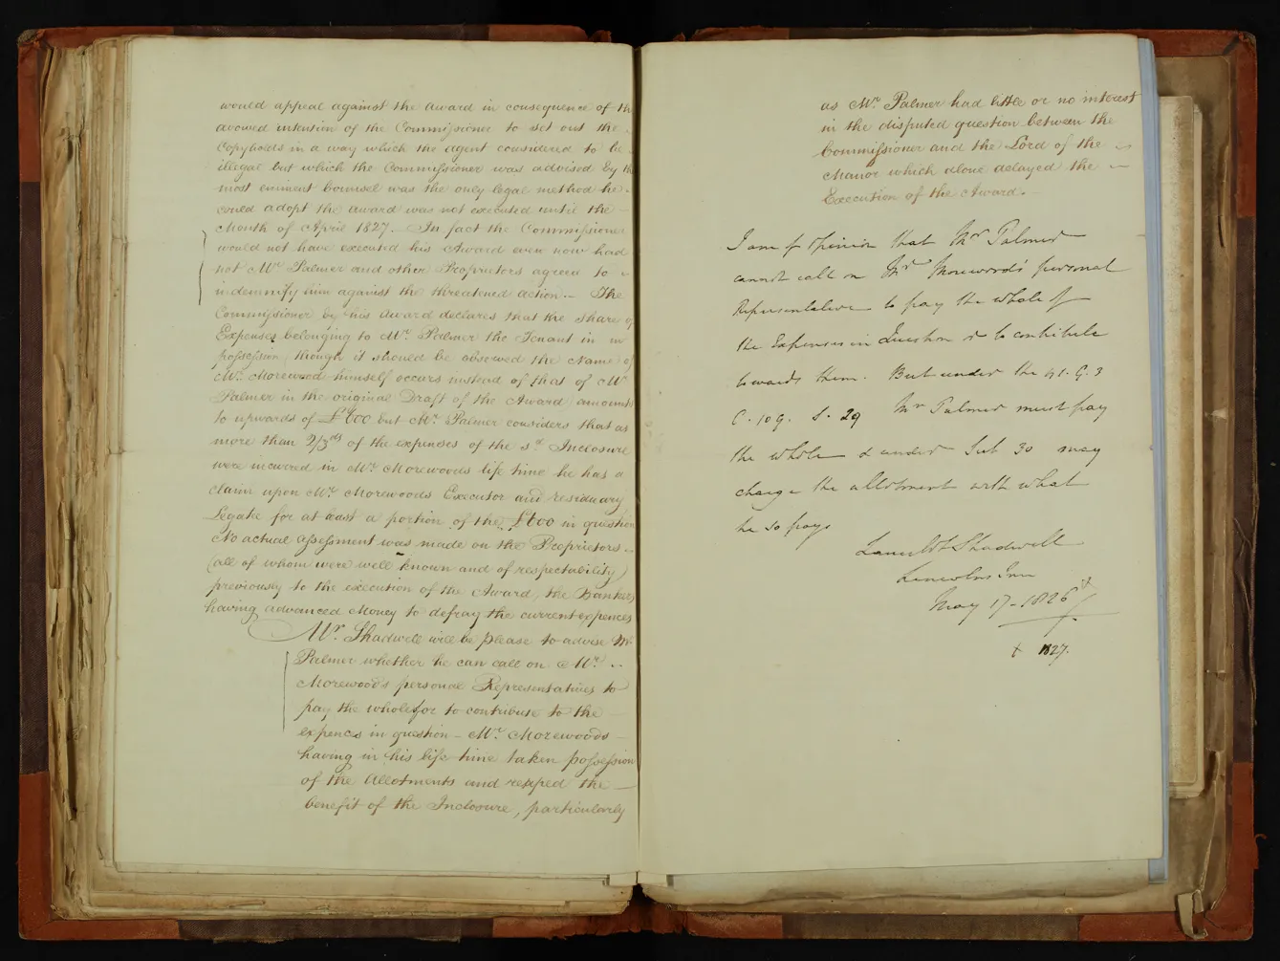 would appeal against the Award in consequence of th
avowed intention of the Commissioner to set out the
Copyholds in a way which the agent considered to be
illegal but which the Commissioner was advised by th
most eminent Counsel was the only legal method he
could adopt the award was not executed until the
Month of April 1827. In fact the Commissioner
would not have executed his Award even now had
not Mr. Palmer and other Proprietors agreed to
indemnify him against the threatened action. The
Commissioner by his Award declares that the share of
Expenses belonging to Mr. Palmer the Tenant in
possession, though it should be observed the Name of
Mr. Morewood himself occurs instead of that of Mr
Palmer in the original Draft of the Award, amounts
to upwards of £600 but Mr. Palmer considers that as
more than 2/3ds of the expenses of the sd. Inclosure
were incurred in Mr. Morewoods life time he has a
claim upon Mr. Morewoods Executor and residuary
Legatee for at least a portion of the £600 in question
No actual assessment was made on the Proprietors
(all of whom were well known and of respectability)
previously to the execution of the Award, the Bankers
having advanced Money to defray the current expences
Mr. Shadwell will be please to advise Mr.
Palmer whether he can call on Mr.
Morewoods personal Representatives to
pay the whole or to contribute to the
expences in question – Mr. Morewoods –
having in his life time taken possession
of the Allotments and reaped the
benefit of the Inclosure, particularly
as Mr. Palmer had little or no interest
in the disputed question between the
Commissioner and the Lord of the
Manor which alone delayed the
Execution of the Award.
I am of Opinion that Mr Palmer
cannot call on Mr Morewood's personal
Representative to pay the whole of
the Expenses in Question or to contribute
towards them. But under the 41. G. 3
C. 109. S. 29 Mr Palmer must pay
the whole & under Sect 30 may
charge the allotment with what
he so pays
Lancelot Shadwell
Lincolns Inn
May 17 - 1826 +
+ 1827.